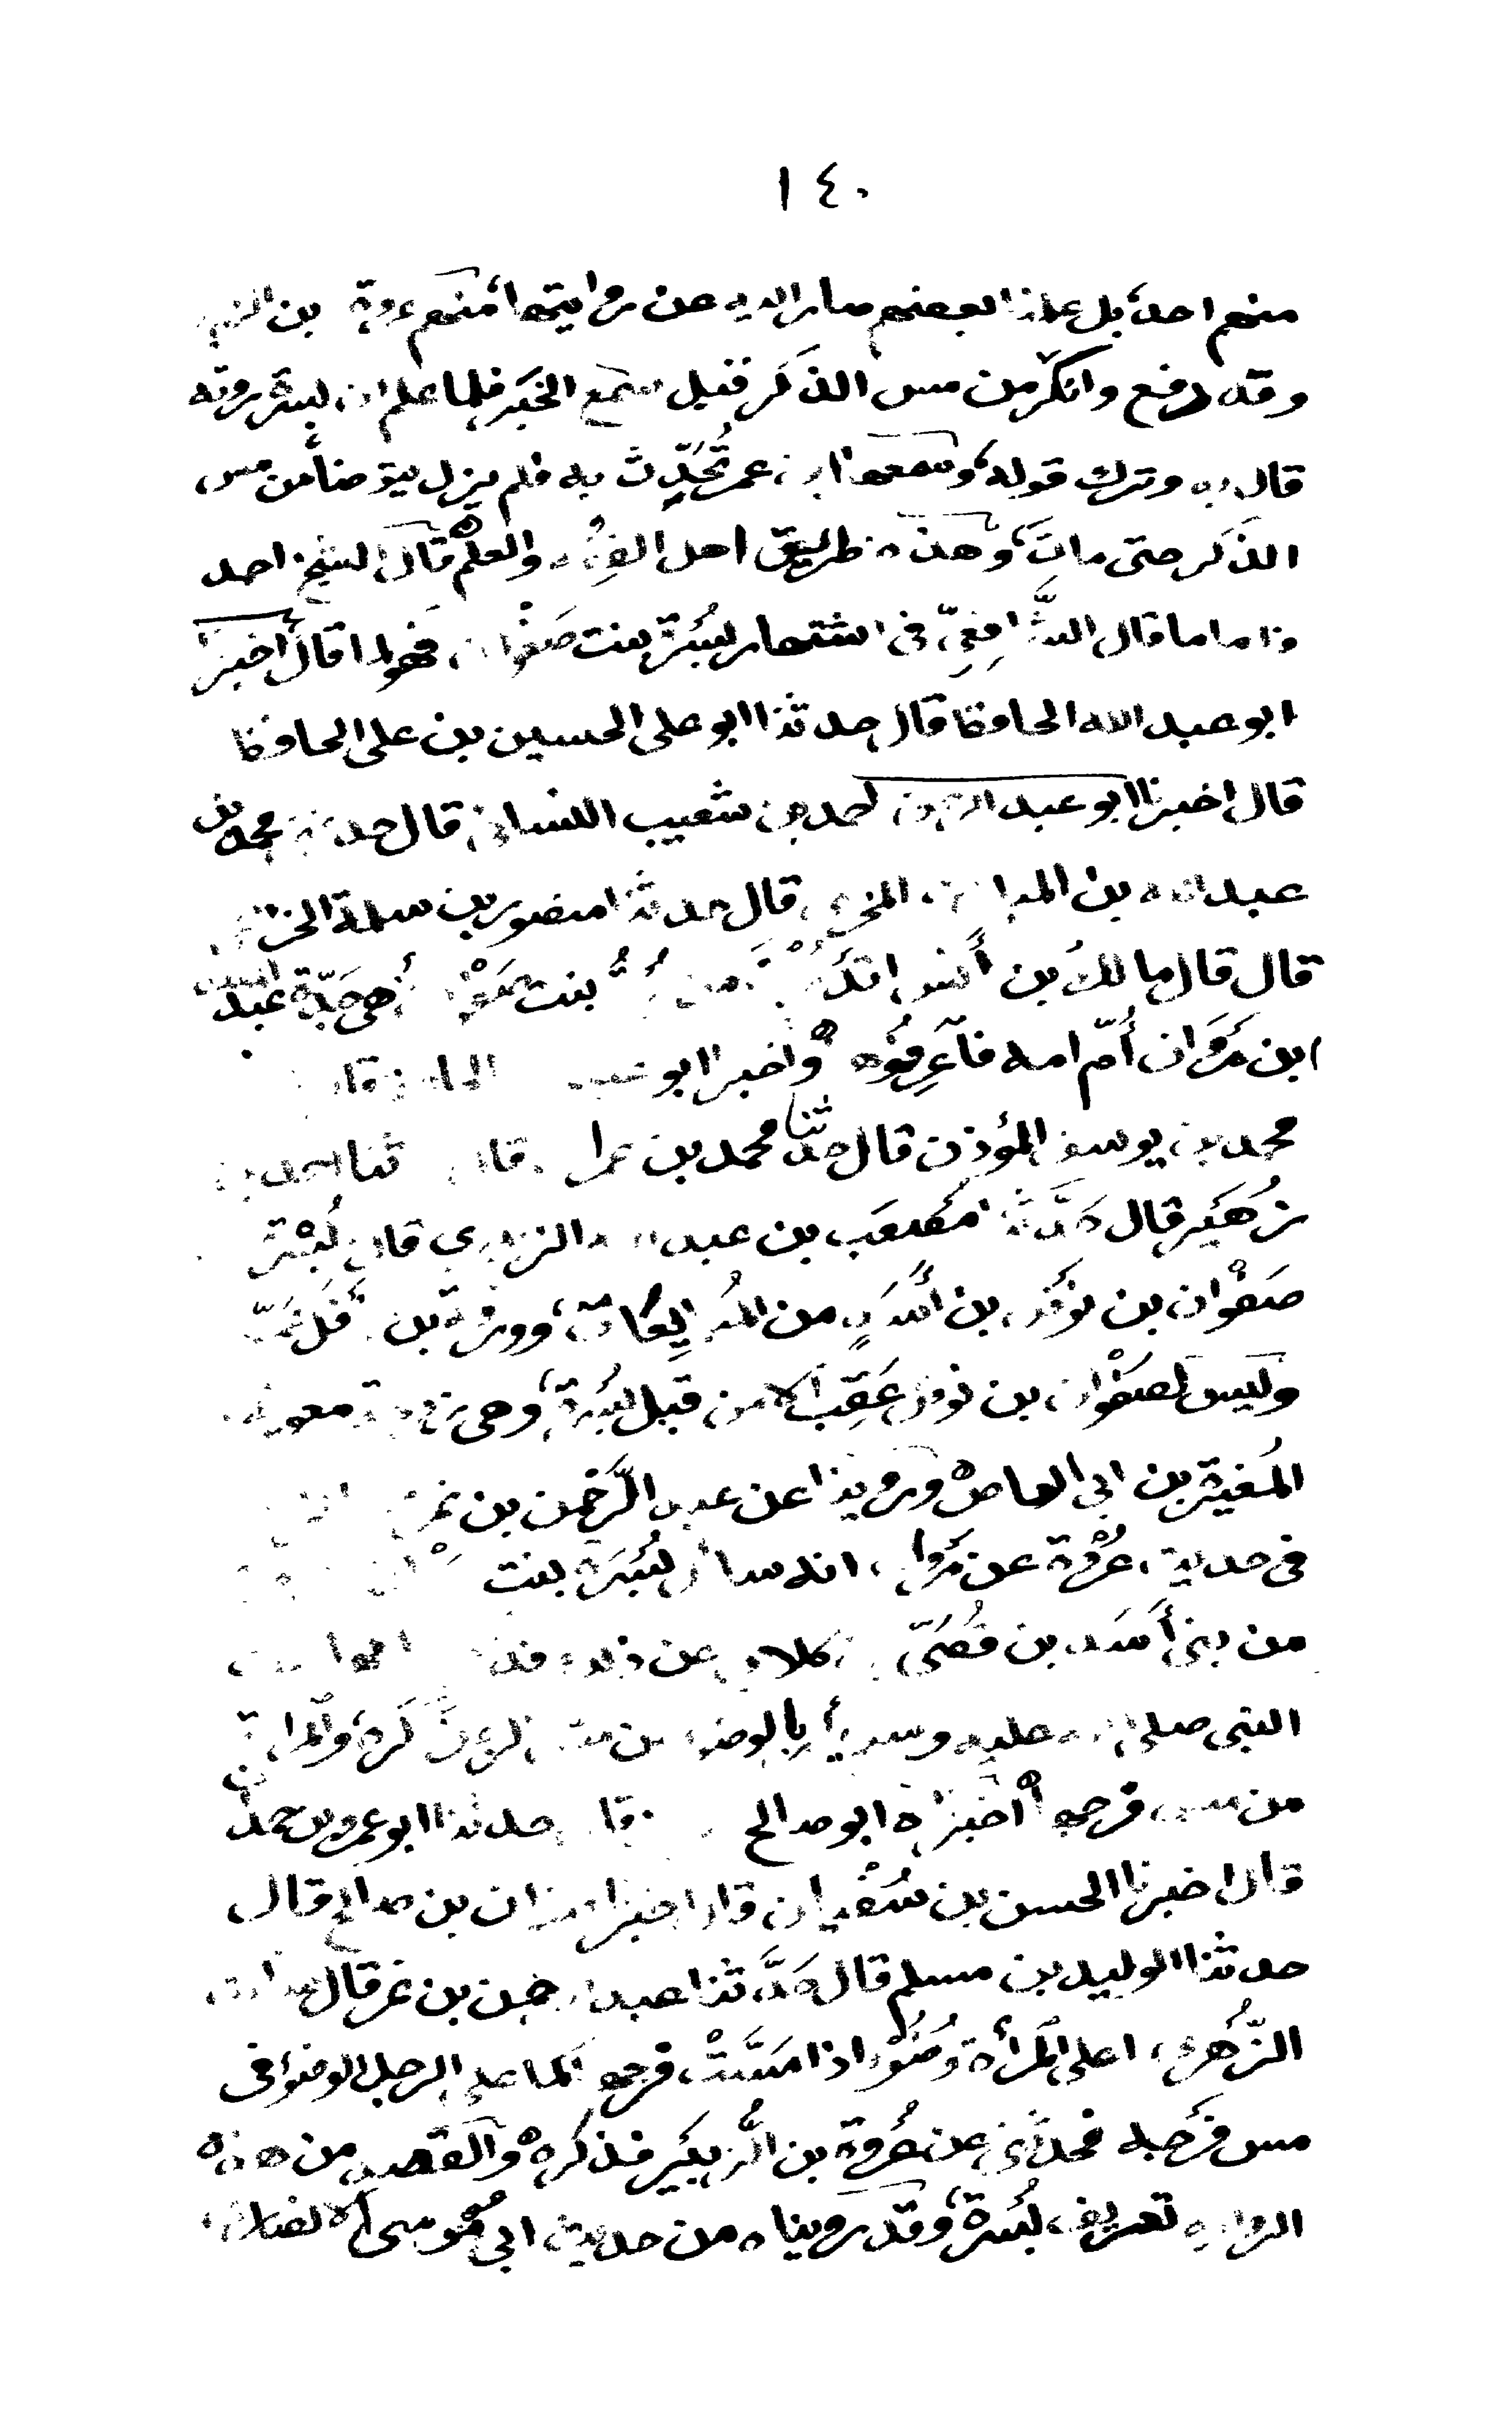 ١٤٠
منهم احد بل علمنا بعضهم صار اليه عن روايتها منهم عروة بن الزبير
وقد دفع وانكر من مس الذكر قبل سمع الخبر فلما علم ان بسرة روته
قال به وترك قوله وسمعها ابن عمر تُحَدِّث به فلم يزل يتوضأ من مس
الذكر حتى مات وهذه طريق اهل الفقه والعلم قال الشيخ احمد
واما ما قال الشَّافِعِيّ فى اشتهار بُسْرة بنت صَفْوان فهو لما قال اخبرنا
ابو عبد الله الحافظ قال حدثنا ابو على الحسين بن على الحافظ
قال اخبرنا ابو عبد الرحمن احمد بن شعيب النسائى قال حدثنا محمد بن
عبد الله بن المبارك المخرمى قال حدثنا منصور بن سلمة الخزاعى
قال قال مالك بن أنس اتدرون من بُسْرة بنت صفوان هى جَدّة عبد الملك
ابن مَرْوان أُمّ امه فاعرفوه واخبرنا ابو عبد الله الحافظ قال
محمد بن يوسف المؤذن قال حدثنا محمد بن عمران قال ثنا احمد بن
زُهَيْر قال حَدَّثنا مُصْعَب بن عبد الله الزبيرى قال بُسْرة
صَفْوان بن نوفل بن أَسَدٍ من المُبَايِعَات وورقة بن نوفل عَمّ
وليس لصَفْوان بن نوفل عَقِب الا من قبل بُسْرة وهى زوجة معوية
المُغيرة بن ابى العاص وروينا عن عبد الرَّحْمن بن نمر
فى حديث عُرْوة عن مَرْوان انه سأل بُسْرَة بنت
من بنى أَسَد بن قُصَىّ عن ذلك
النبى صلى الله عليه وسلم يأمر بالوضوء من مس الذكر والمرأة
من مس فرجها اخبرناه ابو صالح قال حدثنا ابو عمرو بن حمدان
قال اخبرنا الحسن بن سُفْيان قال اخبرنا صفوان بن صالح قال
حدثنا الوليد بن مسلم قال حَدَّثنا عبد الرحمن بن نمر قال سألت
الزُّهرى اعلى المرأة وُضُوء اذا مَسَّتْ فرجها كما على الرجل الوضوء فى
مس فَرْجه فحدثنى عن عُرْوة بن الزُّبَيْر فذكره والقصد من هذه
الرواية تعريف بُسْرة وقد روينا من حديث ابى مُوسى الانصارى